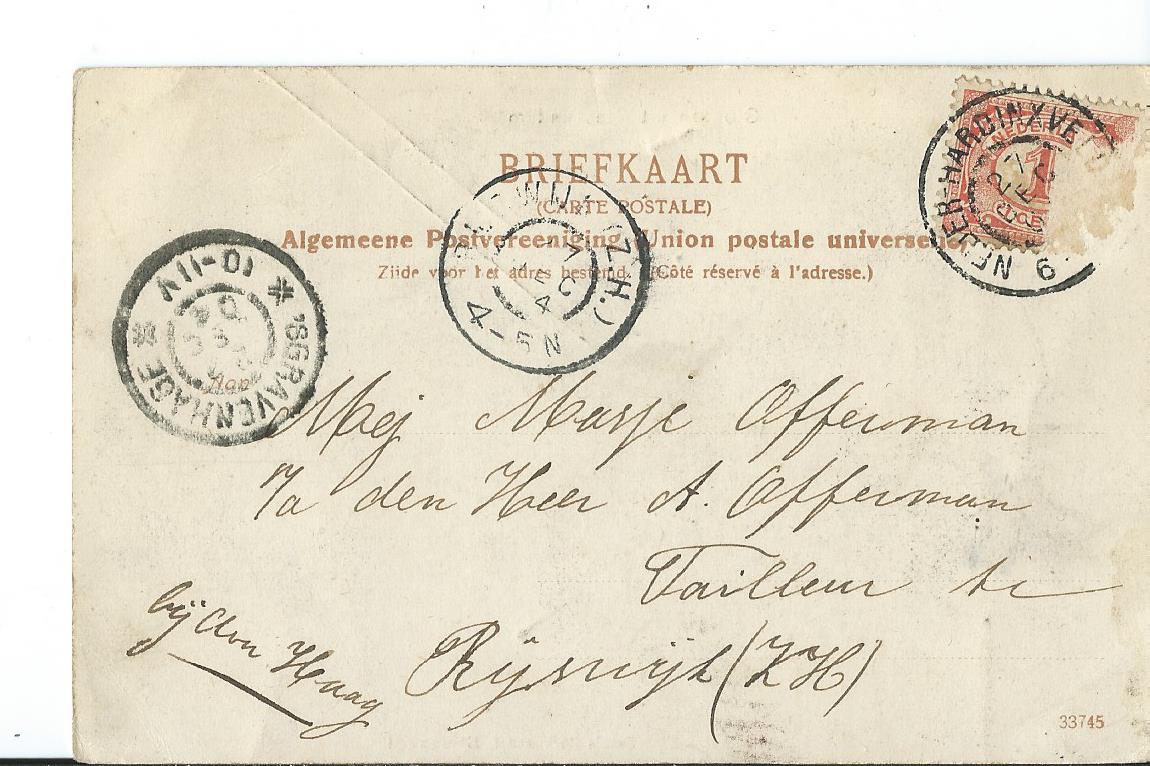 BRIEFKAART
(CARTE POSTALE)
Algemeene Postvereeniging Union postale universelle
Zijde voor het adres bestemd. (Côté réservé à l'adresse.)
NEDER-HARDINXVE
9
NEDER
1
(Z.H.)
4-5N
'SGRAVENHAGE
10-11V
Aan
Mej Marje Offerman
7a den Heer A. Offerman
Tailleur te
Rijswijk (ZH)
bij den Haag
33745